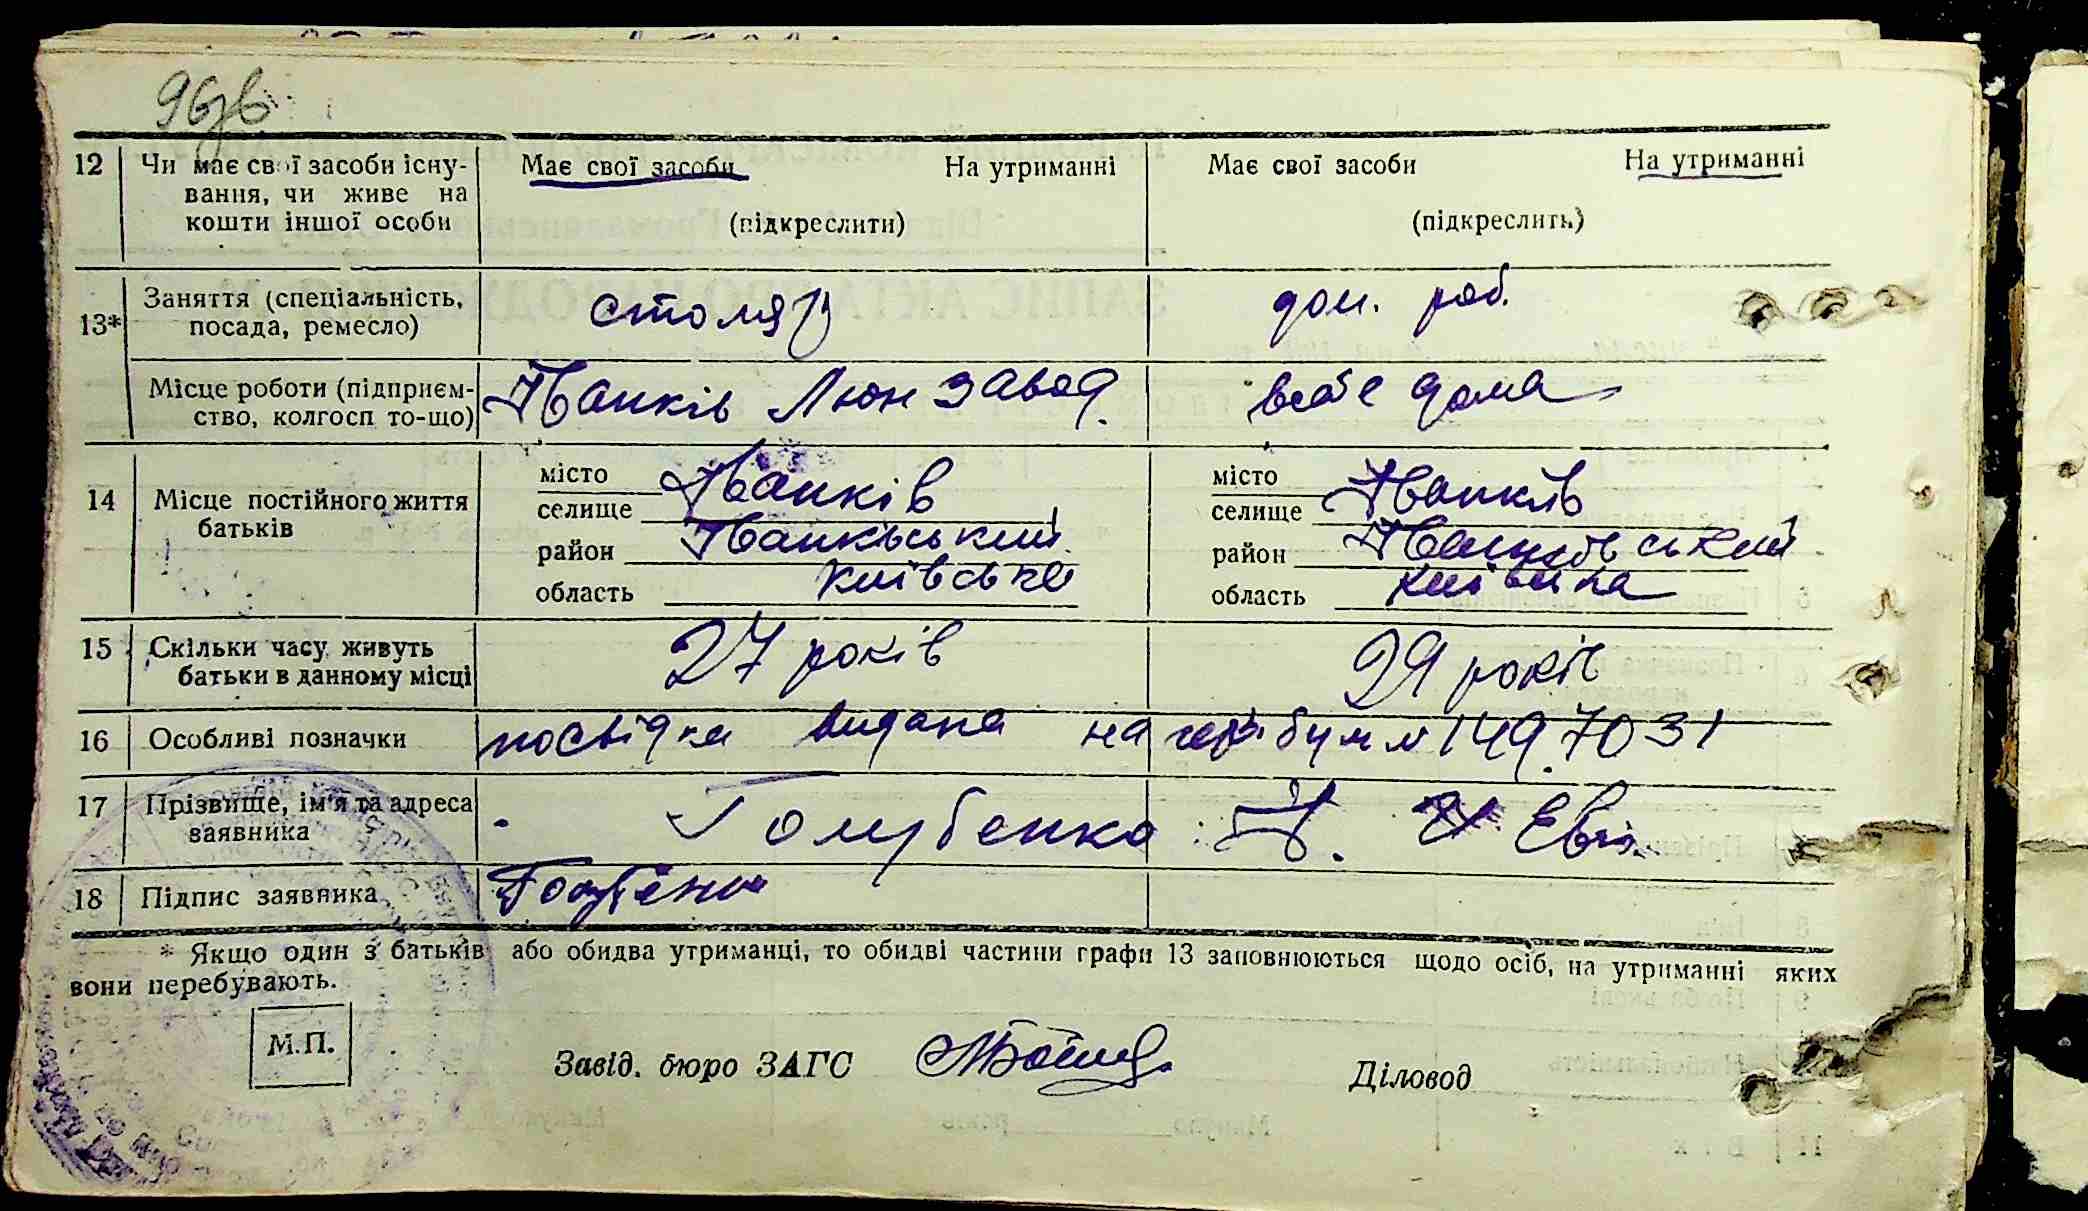 96зв
12 Чи має свої засоби існу- Має свої засоби На утриманні Має свої засоби На утриманні
вання, чи живе на
кошти іншої особи (підкреслити) (підкреслить)
13* Заняття (спеціальність, столяр дом. роб.
посада, ремесло)
Місце роботи (підприєм- Іванків Льон завод. всебе дома
ство, колгосп то-що)
14 Місце постійного життя батьків
місто Іванків місто Іванків
селище селище
район Іванківський район Іванківський
область київська область київська
15 Скільки часу живуть 27 років 29 років
батьки в данному місці
16 Особливі позначки посвідка видана на 149.7031
17 Прізвище, ім'я та адреса Голубенко І.
заявника
18 Підпис заявника
* Якщо один з батьків або обидва утриманці, то обидві частини графи 13 заповнюються щодо осіб, на утриманні яких
вони перебувають.
М.П.
Завід. бюро ЗАГС Діловод